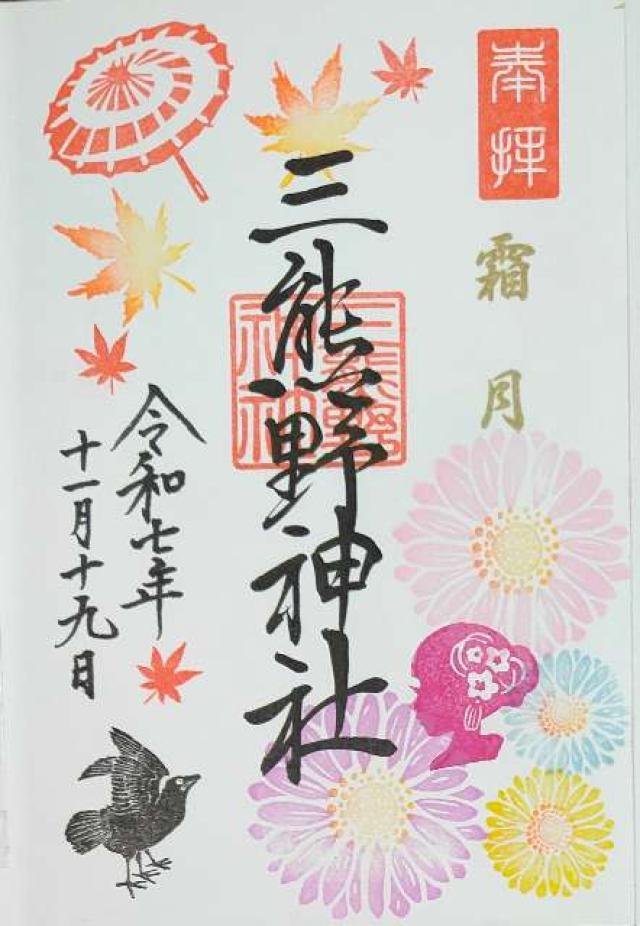 奉拝
霜月
三熊野神社
三熊野
神社
令和七年
十一月十九日